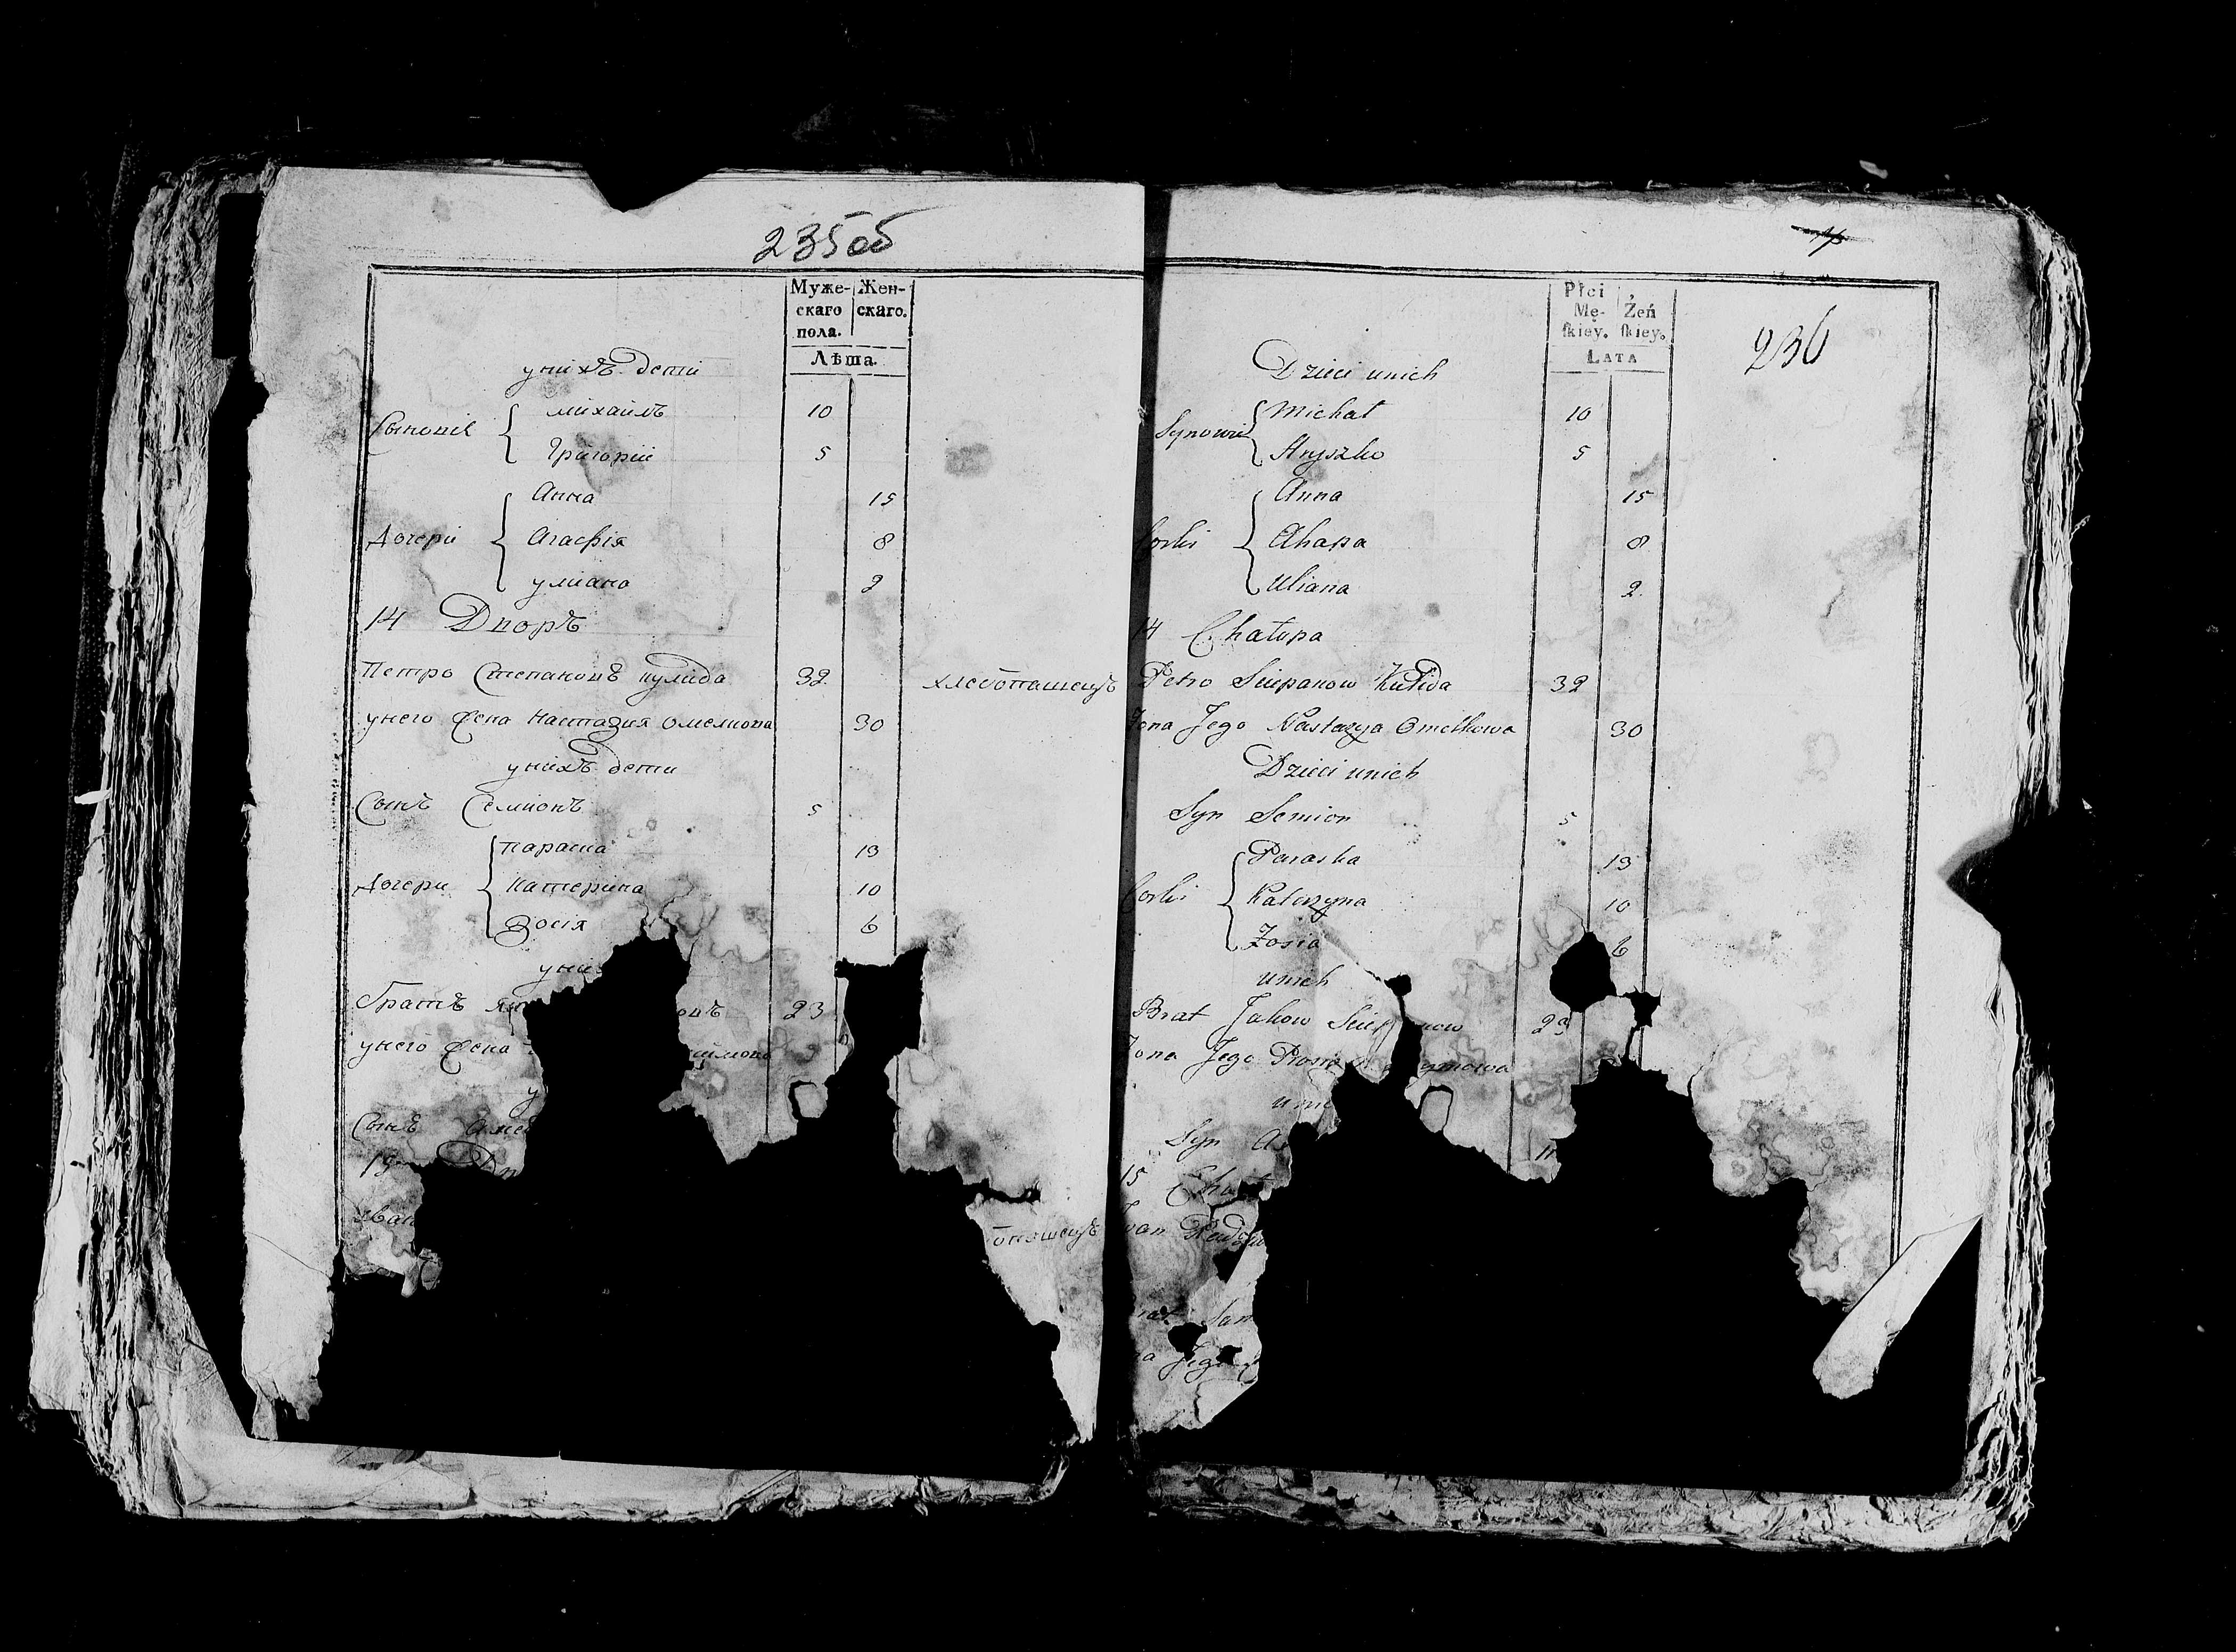 235 об
Муже- Жен-
скаго скаго.
пола.
Лѣта.
унихъ дети
Сыновіе
михайлъ 10
Григорий 5
Дочери
Анна 15
Агафія 8
улиана 2
14 Дворъ
Петро Степановъ кулида 32 хлебопашецъ
унего жена Настазия Омелкова 30
унихъ дети
Сынъ Семионъ 5
Дочери
параска 13
катерина 10
Зося 6
уних
братъ 23
унего жена
у
Сынъ
15 Дв
Иван
опашецъ
236
Płci
Mę- Żeń
skiey. skiey.
LATA
Dzieci unich
Synowie
Michał 10
Hryszko 5
Corki
Anna 15
Ahapa 8
Uliana 2
14 Chałupa
Petro Sciepanow Kulida 32
Zona Jego Nastazya Omelkowa 30
Dzieci unich
Syn Semion 5
Corki
Paraska 13
Katerzyna 10
Zosia 6
unich
Brat Jakow Sciepanow 23
Zona Jego
unic
Syn
15 Chał
Iwan
Sam
Jego